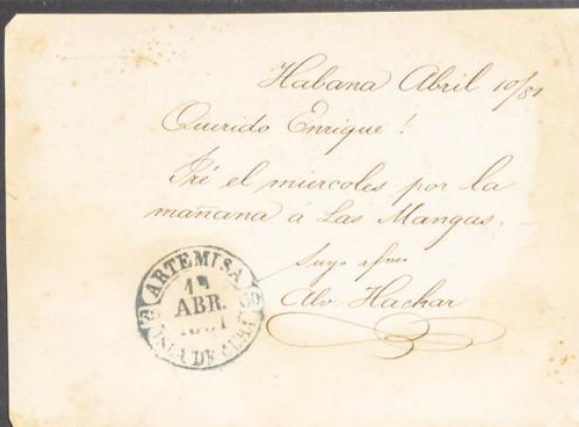 Habana Abril 10/81
Querido Enrique!
Iré el miercoles por la
mañana á Las Mangas.
Suyo afmo
Alv. Hachar
ARTEMISA
ABR.
ISLA DE CUBA